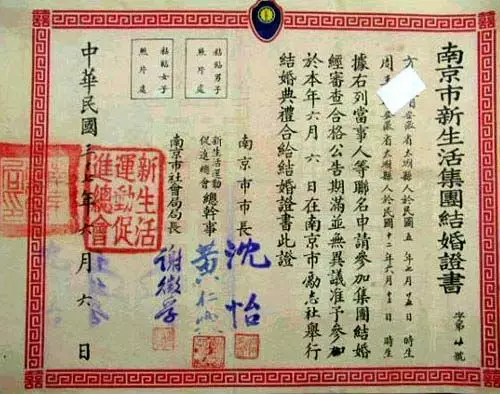 南京市新生活集團結婚證書
字第 號
方 安徽省太湖縣人於民國五年七月 日 時生
周 安徽省太湖縣人於民國十二年六月十三日 時生
據右列當事人等聯名申請參加集團結婚
經審查合格公告期滿並無異議准予參加
於本年六月六日在南京市勵志社舉行
結婚典禮合給結婚證書此證
南京市市長 沈怡
新生活運動
促進總會 總幹事 黃仁霖
南京市社會局局長 謝徵孚
粘貼男子
照片處
粘貼女子
照片處
新生活
運動促
進總會
中華民國 七年六月六日